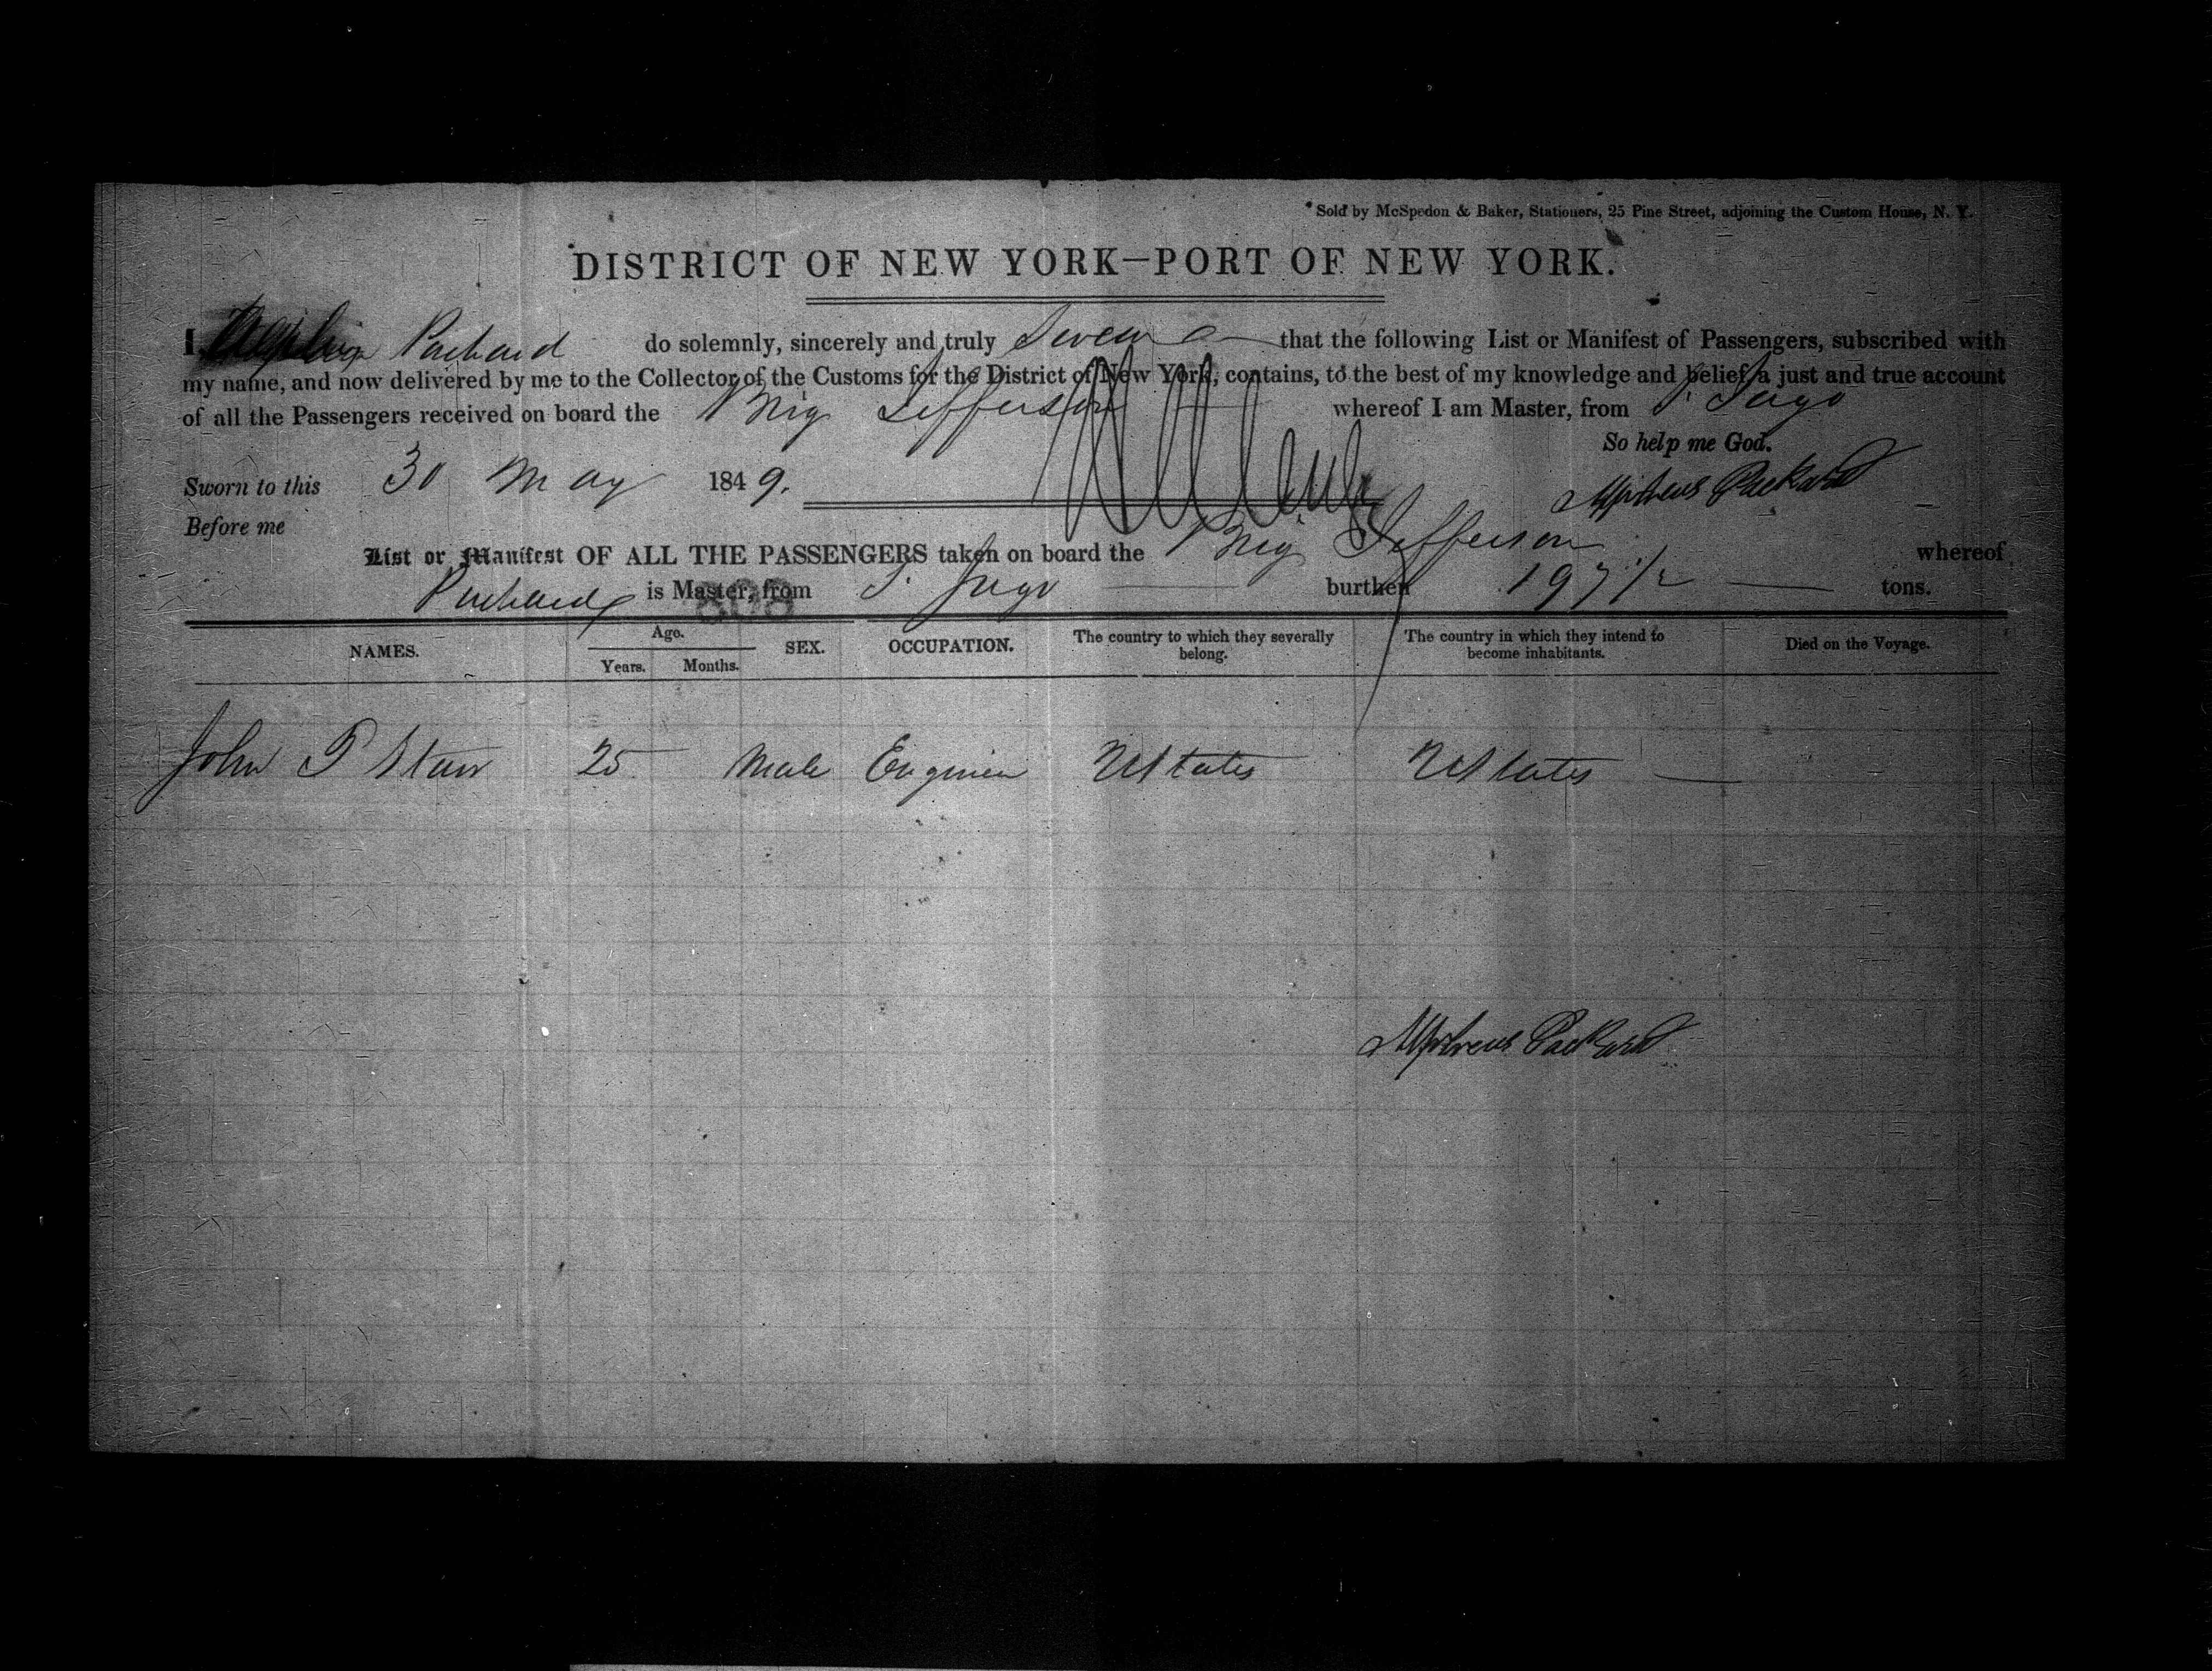 Sold by McSpedon & Baker, Stationers, 25 Pine Street, adjoining the Custom House, N. Y.
DISTRICT OF NEW YORK—PORT OF NEW YORK.
I, Packard do solemnly, sincerely and truly Swear that the following List or Manifest of Passengers, subscribed with
my name, and now delivered by me to the Collector of the Customs for the District of New York, contains, to the best of my knowledge and belief, a just and true account
of all the Passengers received on board the Brig Jefferson whereof I am Master, from S. Jago
So help me God.
Sworn to this 30 May 1849. Alpheus Packard
Before me
List or Manifest OF ALL THE PASSENGERS taken on board the Brig Jefferson whereof
Packard is Master, from S. Jago burthen 197 1/2 tons.
NAMES. Age. Years. Months. SEX. OCCUPATION. The country to which they severally belong. The country in which they intend to become inhabitants. Died on the Voyage.
John P Starr 25 Male Engineer UStates UStates
Alpheus Packard